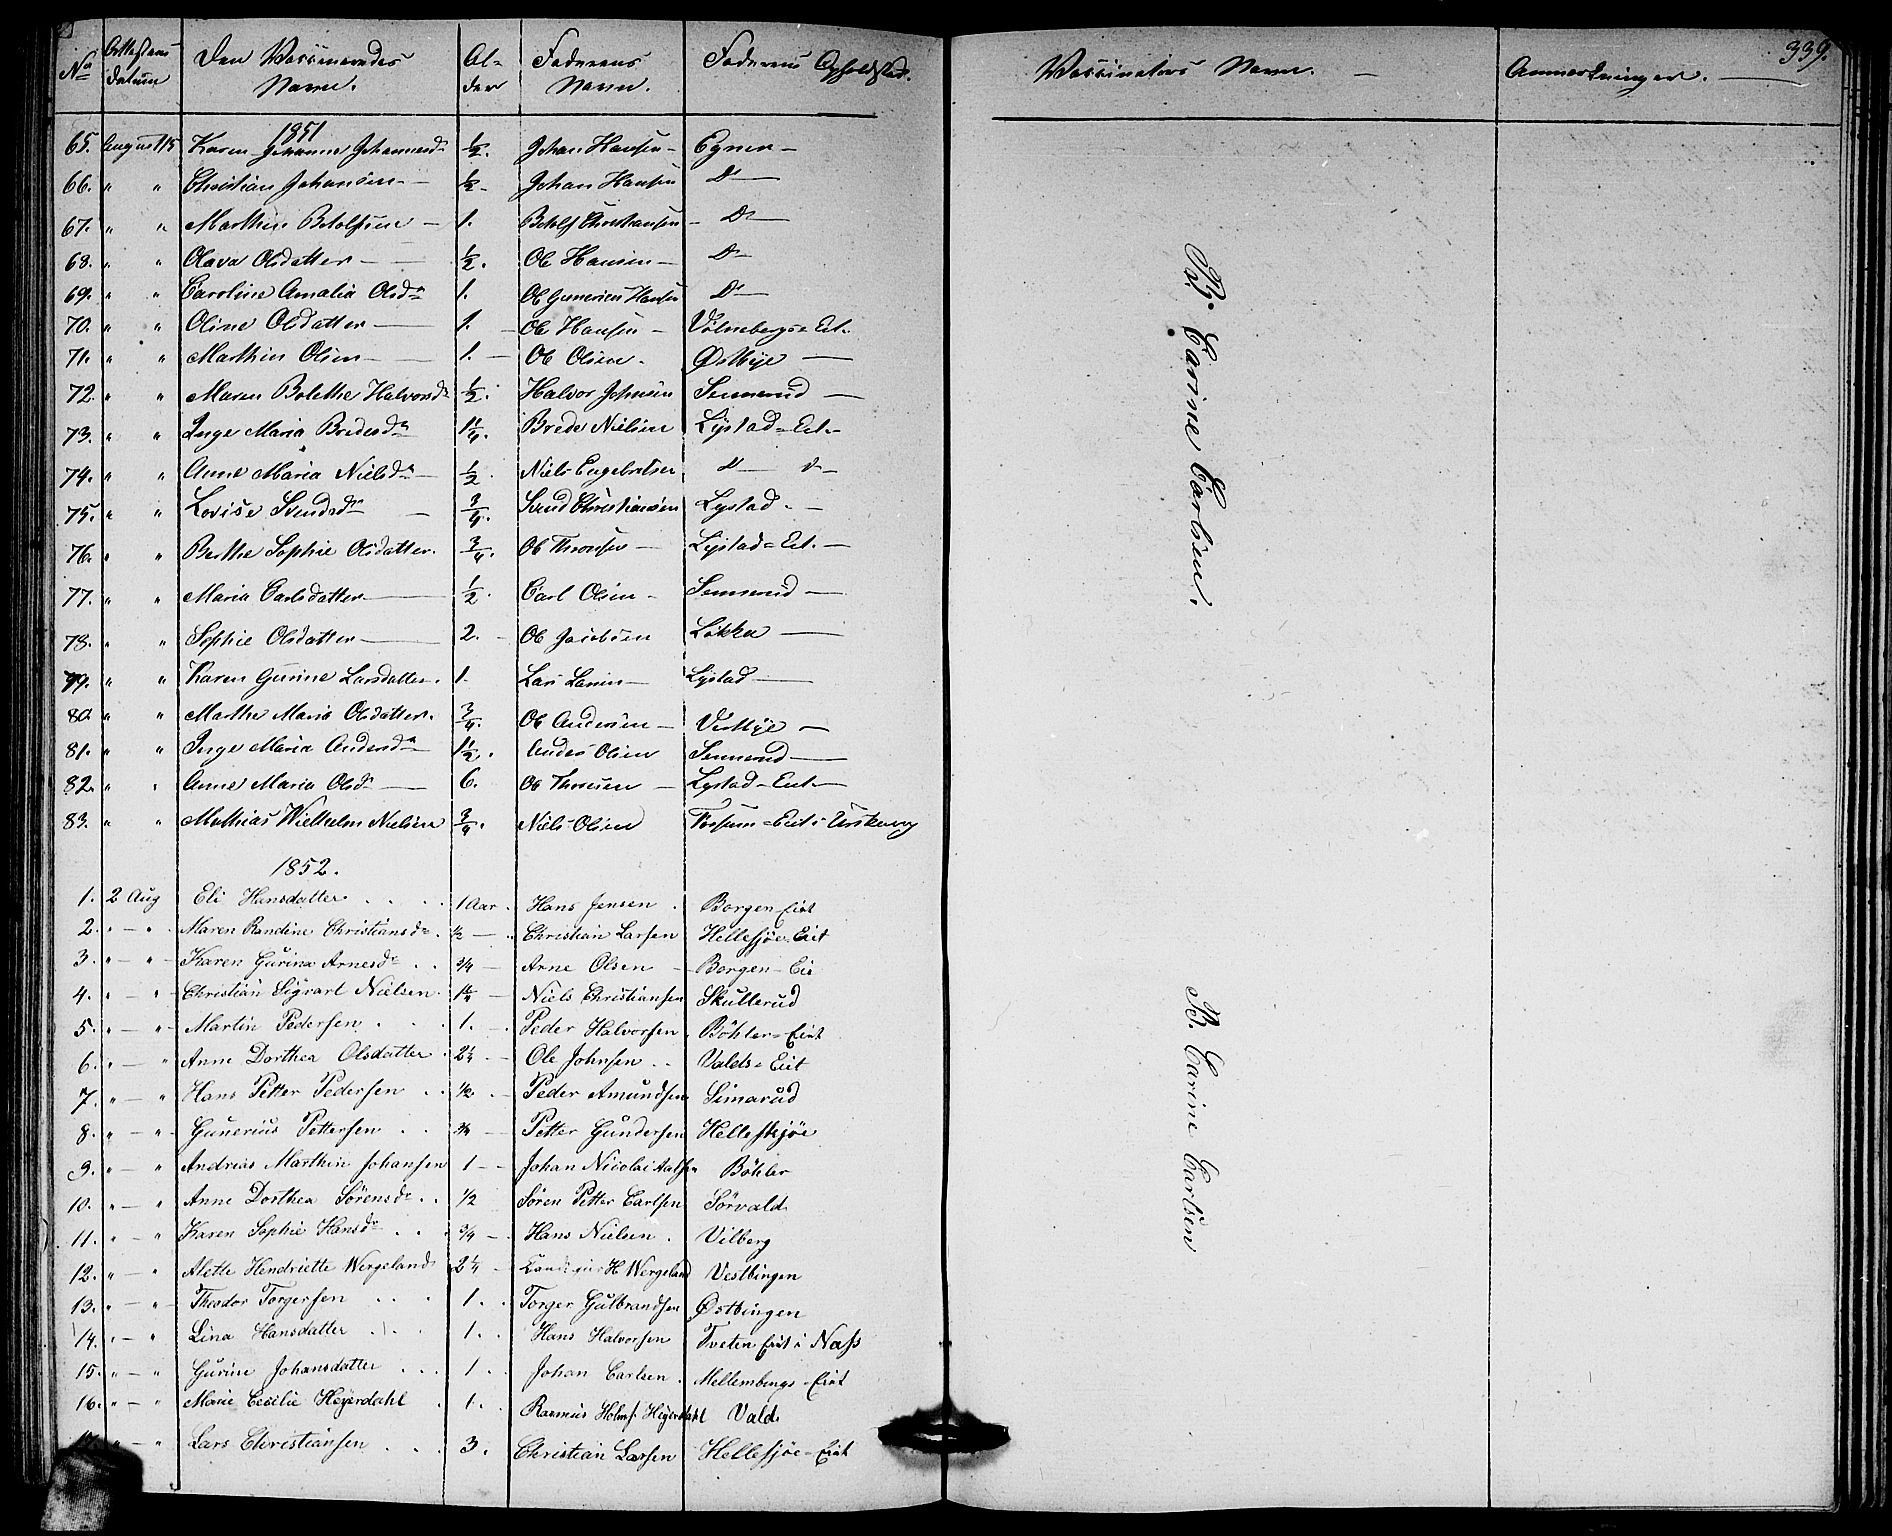 339.
No | Attestens Datum | Den Vaccineredes Navn. | Alder | Faderens Navn. | Faderens Opholdsted. | Vaccinateurs Navn. — | Anmærkninger. —
1851
65. | August 15 | Karen Johanne Johannesd. | 1/2. | Johan Hansen — | Egner —
66. | " " | Christian Johansen — | 1/2. | Johan Hansen | D° —
67. | " " | Marthin Betolfsen — | 1. | Betolf Christiansen — | D° —
68. | " " | Olava Olsdatter — | 1/2. | Ole Hansen — | D° —
69. | " " | Caroline Amalia Olsdr | 1. | Ole Gunerius Hansen | D° —
70. | " " | Oline Olsdatter — | 1. | Ole Hansen — | Vølnebergs= Eit.
71. | " " | Marthin Olsen — | 1. — | Ole Olsen. | Østbye —
72. | " " | Maren Bolethe Halvorsdr | 1/2. | Halvor Johnsen | Sennerud —
73. | " " | Inge Maria Bredesdr | 1 1/4. | Brede Nielsen | Lystad= Eit. —
74. | " " | Anne Maria Nielsdr — | 1/2. | Niels Engebretsen | d° — d° —
75. | " " | Lovise Svendsdr — | 3/4. | Svend Christiansen | Lystad. —
76. | " " | Berthe Sophie Olsdatter. | 3/4. | Ole Thoresen — | Lystad= Eit. —
77. | " " | Maria Carlsdatter — | 1/2. | Carl Olsen — | Sennerud —
78. | " " | Sophie Olsdatter — | 2. — | Ole Jacobsen | Løkka —
79. | " " | Karen Gurine Larsdatter. | 1. | Lars Larsen — | Lystad —
80. | " " | Marthe Maria Olsdatter. | 3/4. | Ole Andersen — | Vestbye —
81. | " " | Inge Maria Andersdr | 1 1/2. | Anders Olsen | Sennerud —
82. | " " | Anne Maria Olsdr — | 6. | Ole Thoresen — | Lystad= Eit. —
83. | " " | Mathias Wilhelm Nielsen | 3/4. | Niels Olsen | Fossum= Eit i Urskoug
B. Carine Carlsen.
1852.
1. | 2 Aug | Eli Hansdatter . . . . | 1 Aar. | Hans Jensen . | Borgen Eiet
2. | " — " | Maren Randine Christiansdr. | 1/2 — | Christian Larsen | Hellesjøe= Eiet
3. | " — " | Karen Gurina Arnesdr . . | 3/4 — | Arne Olsen — | Borgen= Eie
4. | " — " | Christian Sigvart Nielsen | 1 1/4 — | Niels Christiansen | Skullerud
5. | " — " | Martin Pedersen . . . | 1. — | Peder Halvorsen. | Böhler= Eiet
6. | " — " | Anne Dorthea Olsdatter | 2 1/4 — | Ole Johnsen . . | Valds= Eiet
7. | " — " | Hans Petter Pedersen . . | 1/2. — | Peder Amundsen | Simarud
8. | " — " | Gunerius Pettersen . . | 3/4 — | Petter Gundersen | Hellesjøe
9. | " — " | Andreas Marthin Johansen | 1 — | Johan Nicolai | Böhler
10. | " — " | Anne Dorthea Sörensdr . . | 1/2 | Sören Petter Carlsen | Sörvald.
11. | " — " | Karen Sophie Hansdr . . . | 3/4 — | Hans Nielsen . | Vilberg
12. | " — " | Alette Hendriette Wergeland | 2 1/4 — | H. Wergeland | Vestbingen
13. | " — " | Theodor Torgersen . . . | 1. . | Torger Gulbrandsen | Østbingen
14. | " — " | Lina Hansdatter . . . | 1. . | Hans Halvorsen | Tveten Eiet i Næss
15. | " — " | Gurine Johansdatter . . . | 1 . . | Johan Carlsen . | Mellembings= Eiet
16. | " — " | Marie Cecilie Heyerdahl . | 1. . | Rasmus Holmf. Heyerdahl | Vald.
" — " | Lars Christiansen . . . | 3. | Christian Larsen | Hellesjøe= Eiet
B. Carine Carlsen